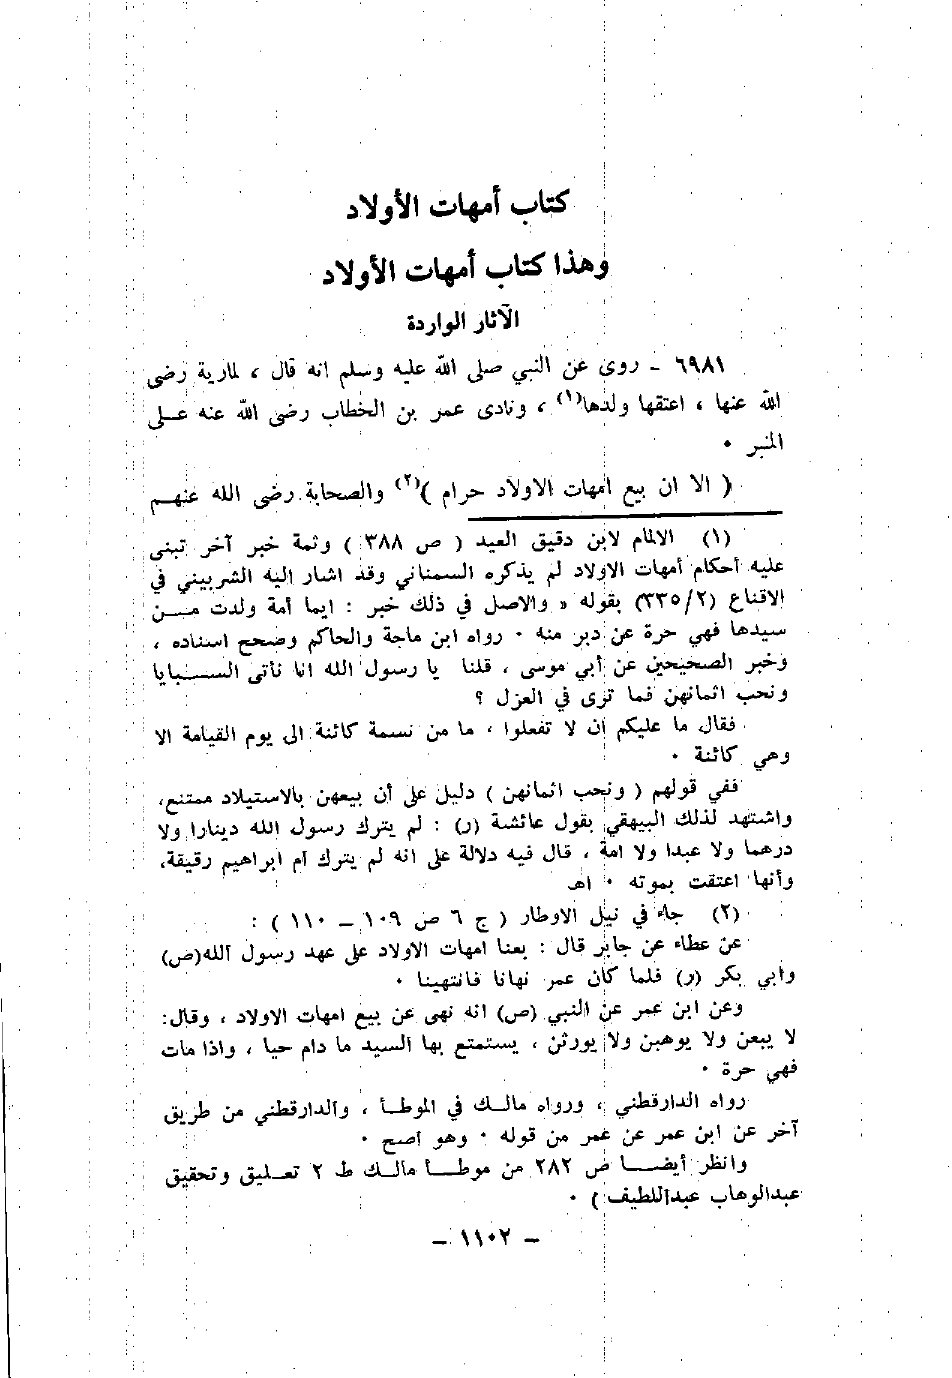 كتاب أمهات الأولاد
وهذا كتاب أمهات الأولاد
الآثار الواردة
٦٩٨١ ـ روى عن النبي صلى الله عليه وسلم انه قال ، لمارية رضى
الله عنها ، اعتقها ولدها(١) ، ونادى عمر بن الخطاب رضى الله عنه على
المنبر ٠
( الا ان بيع امهات الاولاد حرام )(٢) والصحابة رضى الله عنهم
(١) الالمام لابن دقيق العيد ( ص ٣٨٨ ) وثمة خبر آخر تبنى
عليه أحكام أمهات الاولاد لم يذكره السمناني وقد اشار اليه الشربيني في
الاقناع (٣٣٥/٢) بقوله « والاصل في ذلك خبر : ايما أمة ولدت من
سيدها فهي حرة عن دبر منه ٠ رواه ابن ماجة والحاكم وصحح اسناده ،
وخبر الصحيحين عن أبي موسى ، قلنا يا رسول الله انا نأتى السبايا
ونحب اثمانهن فما ترى في العزل ؟
فقال ما عليكم ان لا تفعلوا ، ما من نسمة كائنة الى يوم القيامة الا
وهي كائنة ٠
ففي قولهم ( ونحب اثمانهن ) دليل على أن بيعهن بالاستيلاد ممتنع،
واشتهد لذلك البيهقي بقول عائشة (ر) : لم يترك رسول الله دينارا ولا
درهما ولا عبدا ولا امة ، قال فيه دلالة على انه لم يترك أم ابراهيم رقيقة،
وأنها اعتقت بموته ٠ اهـ
(٢) جاء في نيل الاوطار ( ج ٦ ص ١٠٩ ـ ١١٠ ) :
عن عطاء عن جابر قال : بعنا امهات الاولاد على عهد رسول الله(ص)
وأبي بكر (ر) فلما كان عمر نهانا فانتهينا ٠
وعن ابن عمر عن النبي (ص) انه نهى عن بيع امهات الاولاد ، وقال:
لا يبعن ولا يوهبن ولا يورثن ، يستمتع بها السيد ما دام حيا ، واذا مات
فهي حرة ٠
رواه الدارقطني ، ورواه مالك في الموطأ ، والدارقطني من طريق
آخر عن ابن عمر عن عمر من قوله ٠ وهو أصح ٠
وانظر أيضا ص ٢٨٢ من موطأ مالك ط ٢ تعليق وتحقيق
عبدالوهاب عبداللطيف ) ٠
ـ ١١٠٢ ـ